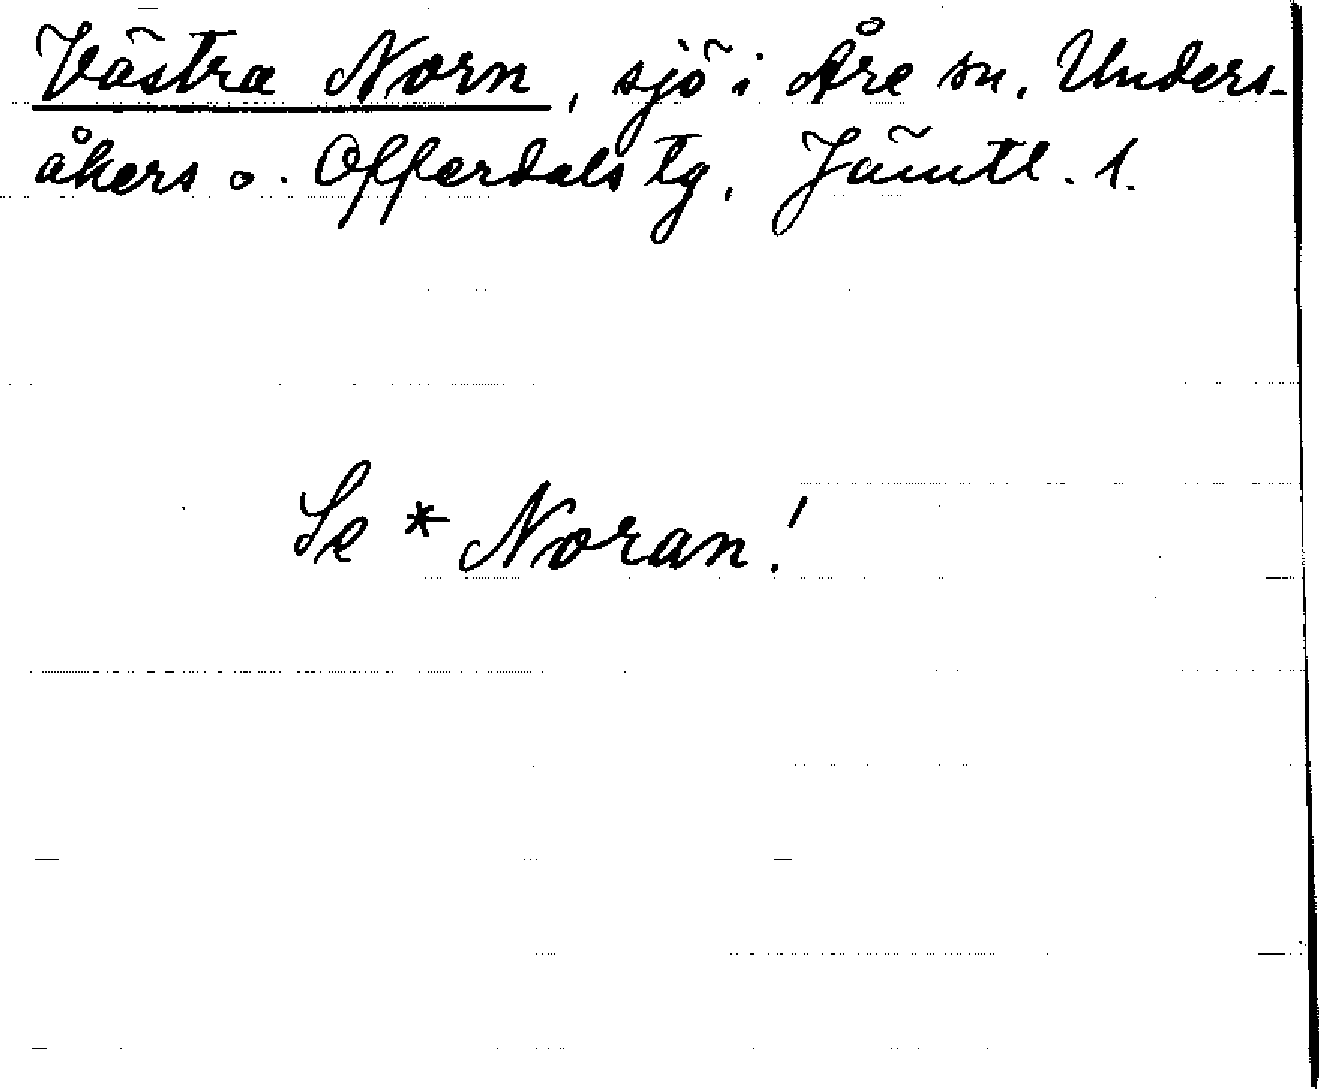 Västra Norn, sjö i Åre sn. Unders-
åkers o. Offerdals tg, Jämtl. l.
Se * Noran!